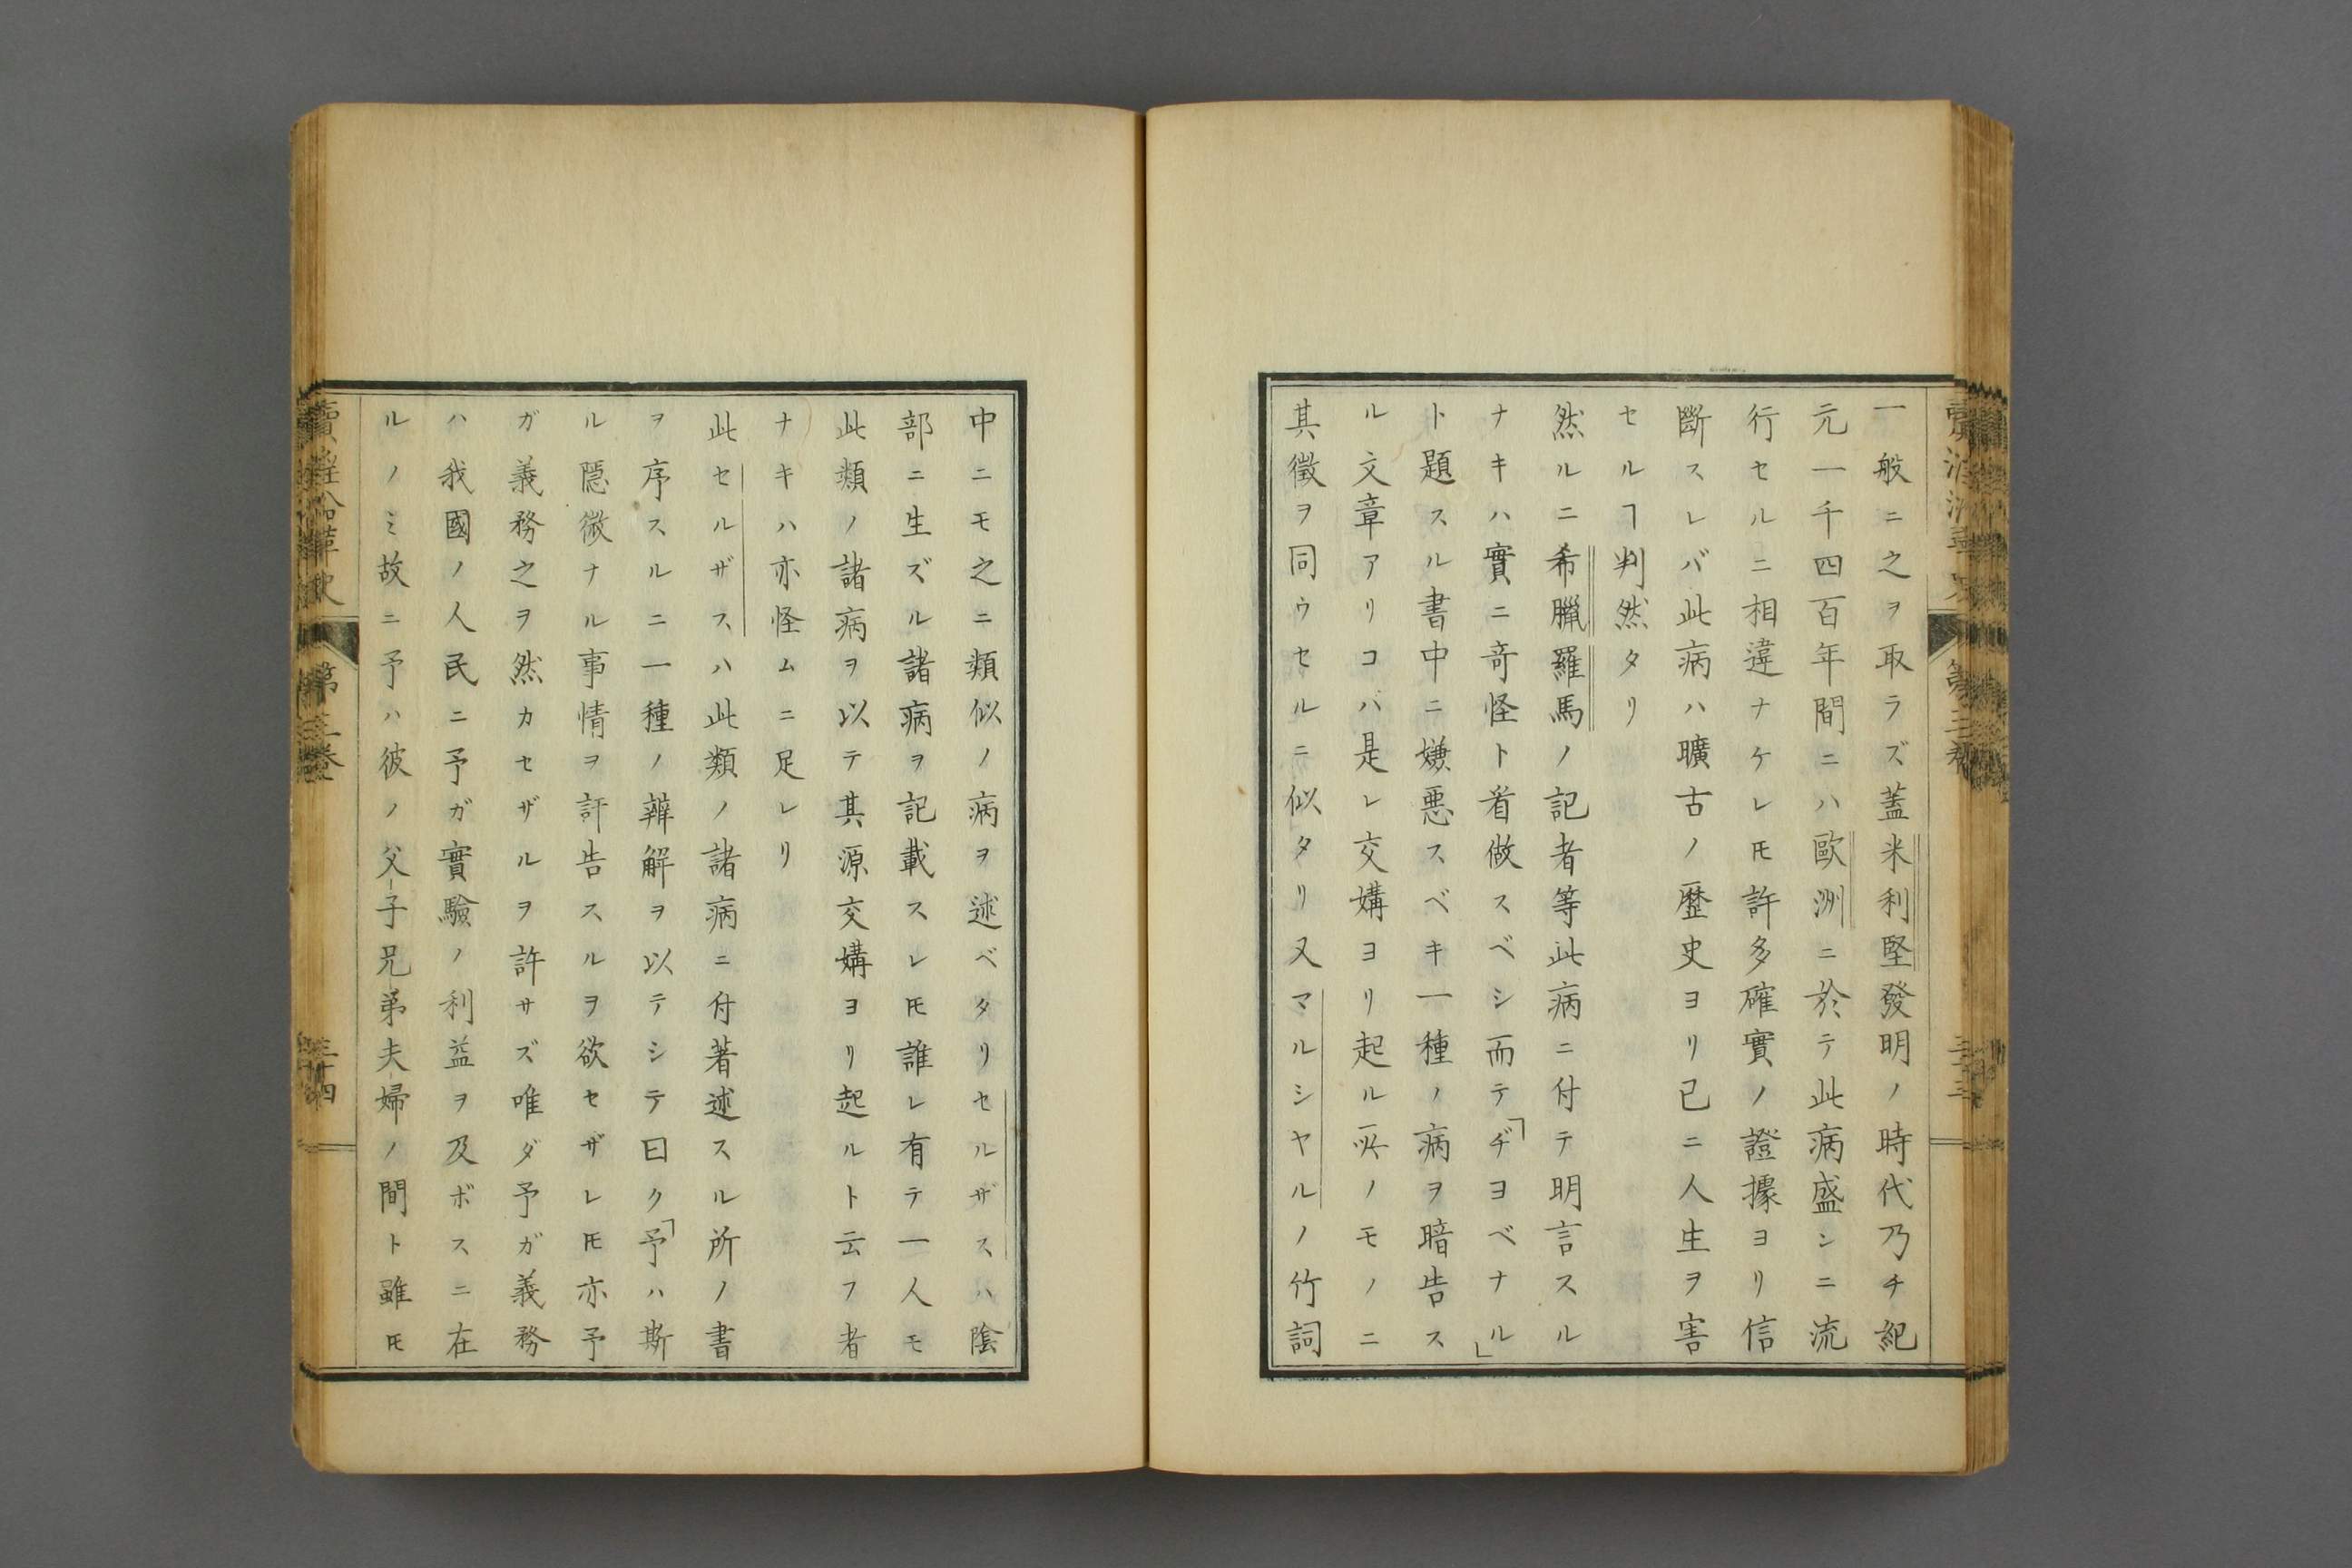 一般ニ之ヲ取ラズ蓋米利堅發明ノ時代乃チ紀
元一千四百年間ニハ歐洲ニ於テ此病盛ンニ流
行セルニ相違ナケレ𪜈許多確實ノ證據ヨリ信
斷スレバ此病ハ曠古ノ歷史ヨリ已ニ人生ヲ害
セルヿ判然タリ
然ルニ希臘羅馬ノ記者等此病ニ付テ明言スル
ナキハ實ニ奇怪ト看做スベシ而テ「ヂヨベナル」
ト題スル書中ニ嫌惡スベキ一種ノ病ヲ暗告ス
ル文章アリコバ是レ交媾ヨリ起ル所ノモノニ
其徵ヲ同ウセルニ似タリ又マルシヤルノ竹詞
中ニモ之ニ類似ノ病ヲ述ベタリセルザスハ陰
部ニ生ズル諸病ヲ記載スレ𪜈誰レ有テ一人モ
此類ノ諸病ヲ以テ其源交媾ヨリ起ルト云フ者
ナキハ亦怪ムニ足レリ
此セルザスハ此類ノ諸病ニ付著述スル所ノ書
ヲ序スルニ一種ノ辨解ヲ以テシテ曰ク「予ハ斯
ル隱微ナル事情ヲ訐告スルヲ欲セザレ𪜈亦予
ガ義務之ヲ然カセザルヲ許サズ唯ダ予ガ義務
ハ我國ノ人民ニ予ガ實驗ノ利益ヲ及ボスニ在
ルノミ故ニ予ハ彼ノ父子兄弟夫婦ノ間ト雖𪜈
第三卷
三十四